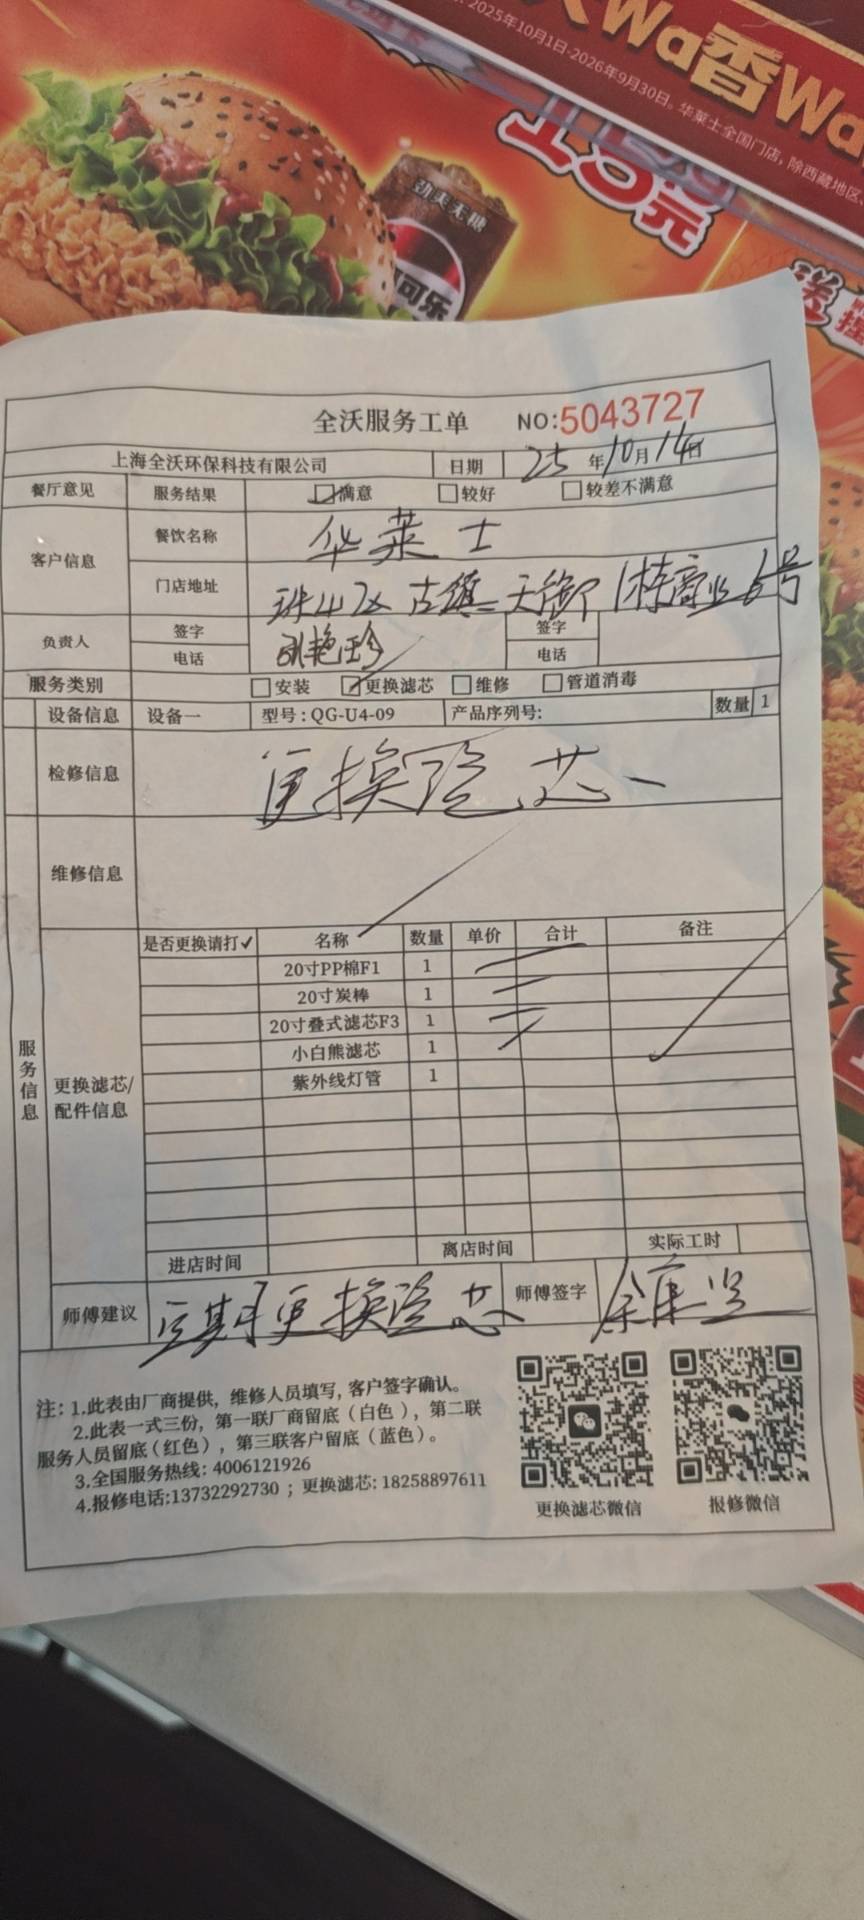 2025年10月1日-2026年9月30日。华莱士全国门店，除西藏地区、
Wa香Wa
劲爽无糖
可乐
元
送
全沃服务工单 NO:5043727
上海全沃环保科技有限公司 日期 25年10月14日
餐厅意见 服务结果 满意 较好 较差不满意
客户信息 餐饮名称 华莱士
门店地址 珠山区古镇天御1栋商业6号
负责人 签字 签字
电话 电话
服务类别 安装 更换滤芯 维修 管道消毒
设备信息 设备一 型号：QG-U4-09 产品序列号: 数量 1
检修信息 更换滤芯
维修信息
服务信息
更换滤芯/配件信息
是否更换请打✓ 名称 数量 单价 合计 备注
20寸PP棉F1 1
20寸炭棒 1
20寸叠式滤芯F3 1
小白熊滤芯 1
紫外线灯管 1
进店时间 离店时间 实际工时
师傅建议 定期更换滤芯 师傅签字
注：1.此表由厂商提供，维修人员填写，客户签字确认。
2.此表一式三份，第一联厂商留底（白色），第二联
服务人员留底（红色），第三联客户留底（蓝色）。
3.全国服务热线：4006121926
4.报修电话:13732292730；更换滤芯: 18258897611
更换滤芯微信 报修微信